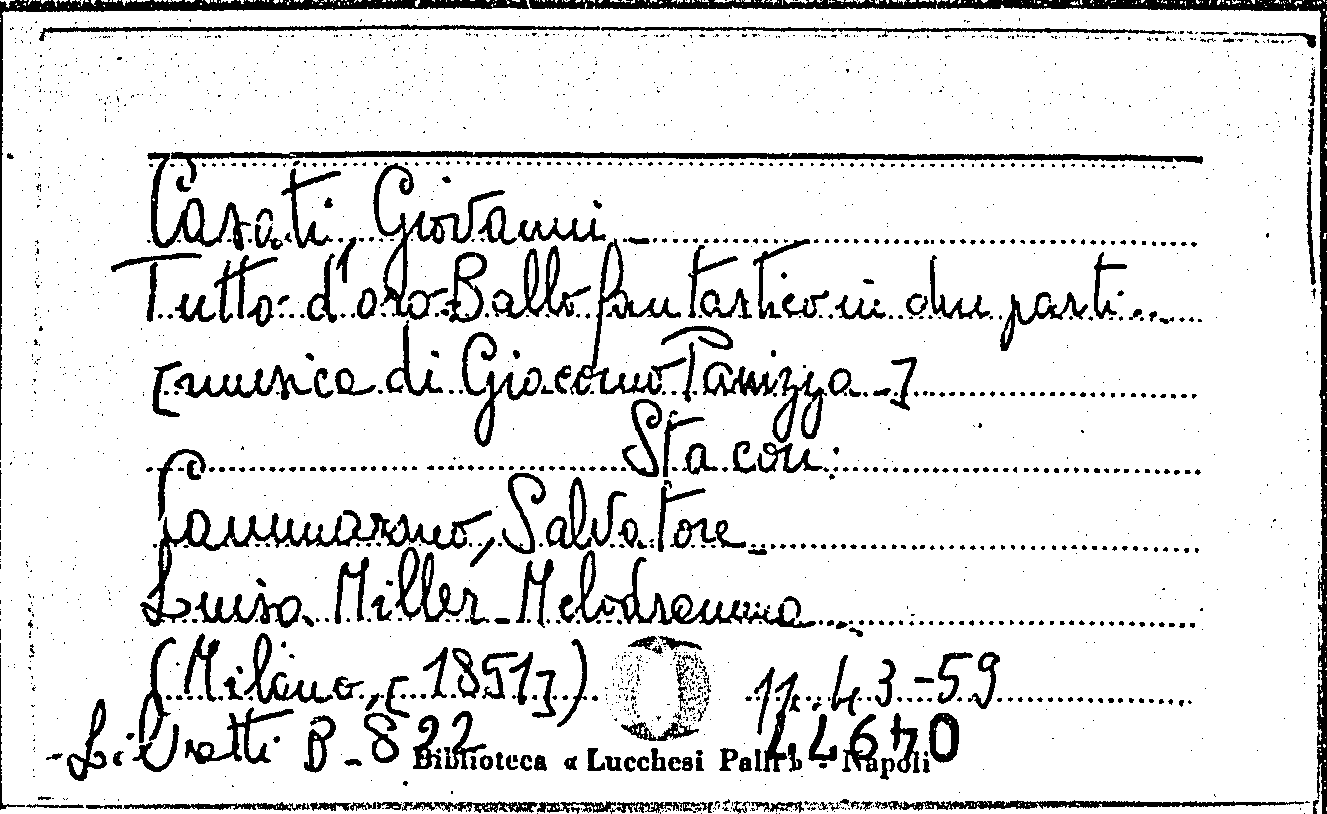 Casati, Giovanni
Tutto d'oro. Ballo fantastico in due parti...
[musica di Giacomo Panizza -]
Sta con:
Cammarano, Salvatore
Luisa Miller - Melodramma...
(Milano, [1851]) pp. 43-59
- Libretti B-822
Biblioteca « Lucchesi Palli » - Napoli